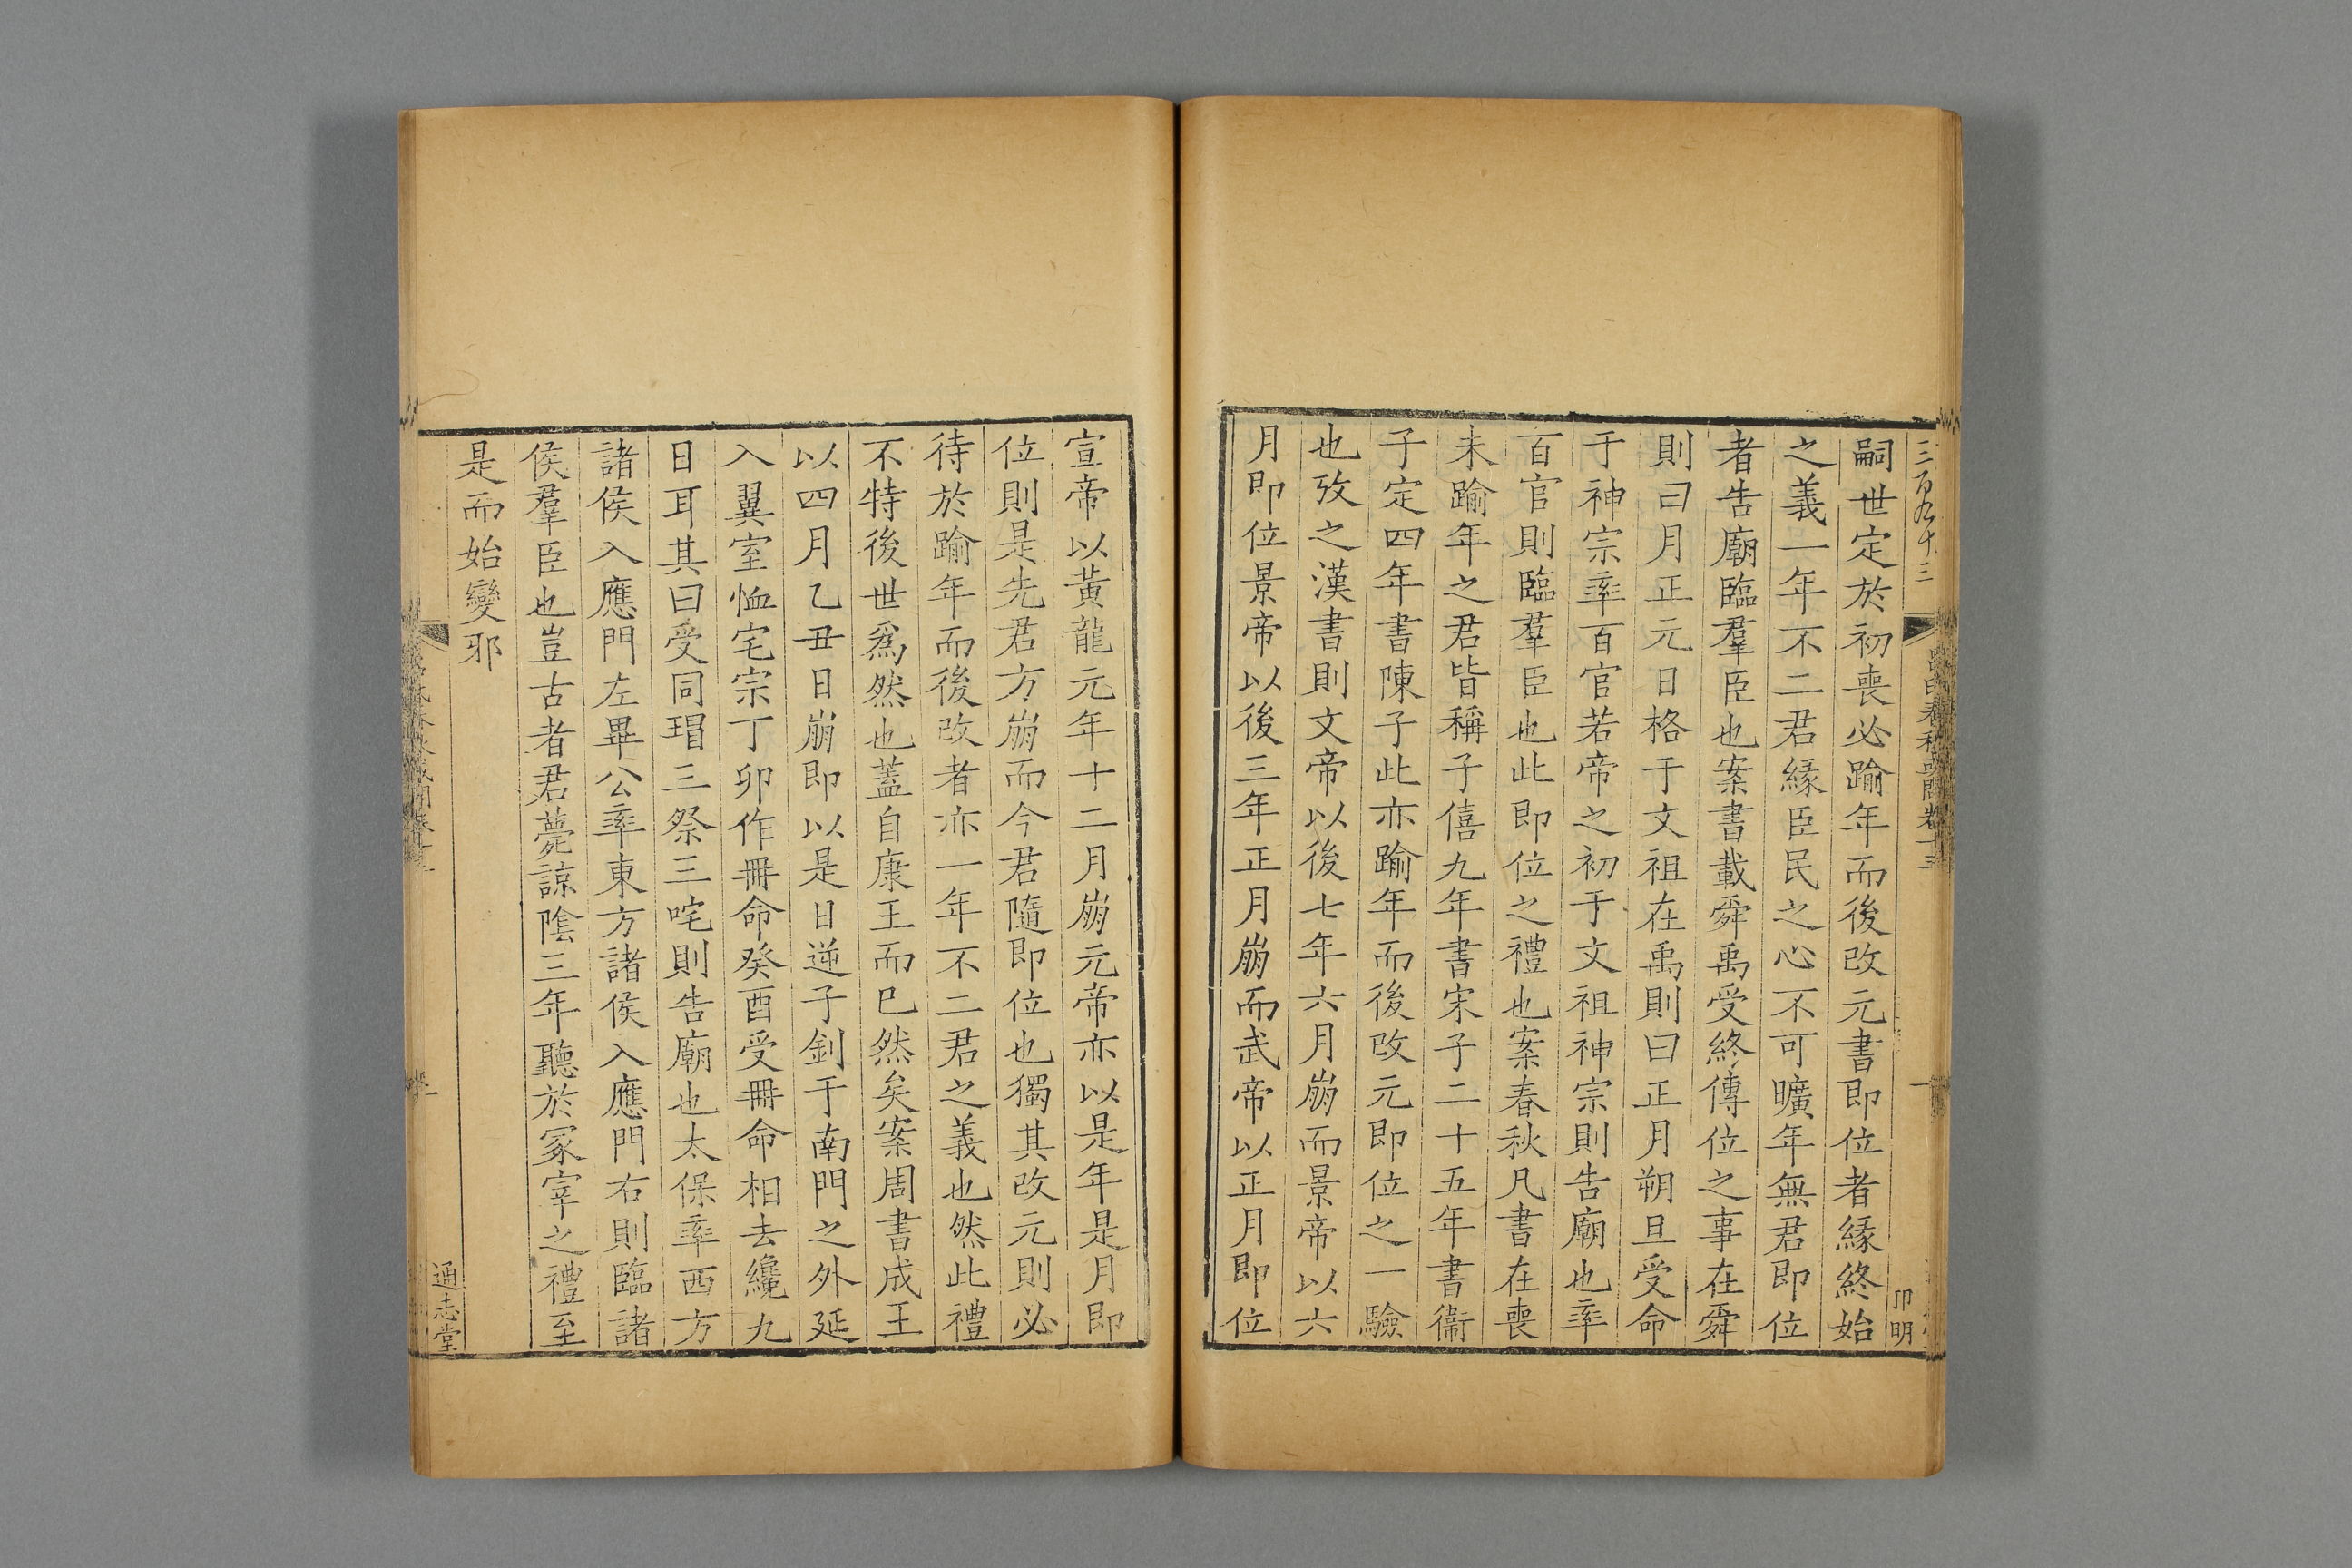 三百九十三
嗣世定於初喪必踰年而後改元書即位者緣終始
之義一年不二君緣臣民之心不可曠年無君即位
者告廟臨羣臣也案書載舜禹受終傳位之事在舜
則曰月正元日格于文祖在禹則曰正月朔旦受命
于神宗率百官若帝之初于文祖神宗則告廟也率
百官則臨羣臣也此即位之禮也案春秋凡書在喪
未踰年之君皆稱子僖九年書宋子二十五年書衞
子定四年書陳子此亦踰年而後改元即位之一驗
也攷之漢書則文帝以後七年六月崩而景帝以六
月即位景帝以後三年正月崩而武帝以正月即位
宣帝以黃龍元年十二月崩元帝亦以是年是月即
位則是先君方崩而今君隨即位也獨其改元則必
待於踰年而後改者亦一年不二君之義也然此禮
不特後世爲然也蓋自康王而巳然矣案周書成王
以四月乙丑日崩即以是日逆子釗于南門之外延
入翼室恤宅宗丁卯作冊命癸酉受冊命相去纔九
日耳其曰受同瑁三祭三咤則告廟也太保率西方
諸侯入應門左畢公率東方諸侯入應門右則臨諸
侯羣臣也豈古者君薨諒陰三年聽於冢宰之禮至
是而始變邪
通志堂